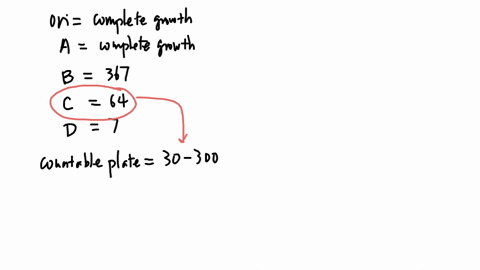 ori = complete growth
A = complete growth
B = 367
C = 64
D = 7
countable plate = 30-300